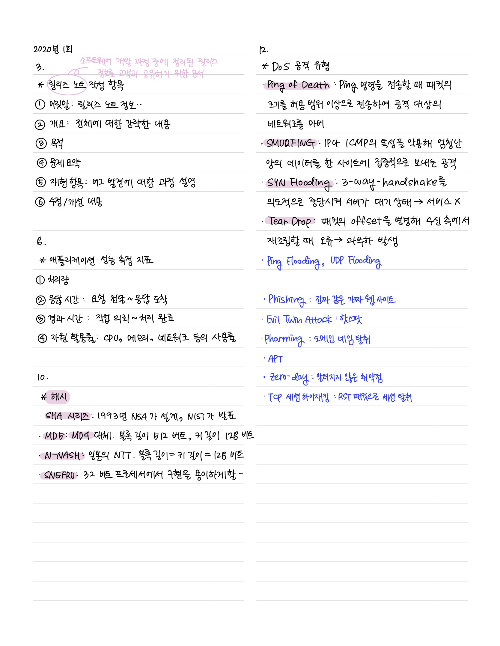 2020년 1회
3.
소프트웨어 개발 과정 중에 정리된 릴리즈
정보를 고객과 공유하기 위한 문서
* 릴리즈 노트 작성 항목
① 머릿말: 릴리즈 노트 정보··
② 개요: 전체에 대한 간략한 내용
③ 목적
④ 문제 요약
⑤ 재현 항목: 버그 발견에 대한 과정 설명
⑥ 수정/개선 내용
6.
* 애플리케이션 성능 측정 지표
① 처리량
② 응답 시간: 요청 전달 ~ 응답 도착
③ 경과 시간: 작업 의뢰 ~ 처리 완료
④ 자원 활용률: CPU, 메모리, 네트워크 등의 사용률
10.
* 해시
SHA 시리즈: 1993년 NSA가 설계, NIST가 발표
· MD5: MD4 대체. 블록 길이 512 비트, 키 길이 128 비트
· N-NASH: 일본의 NTT. 블록 길이 = 키 길이 = 128 비트
· SNEFRU: 32 비트 프로세서에서 구현을 용이하게 할 -
12.
* DoS 공격 유형
· Ping of Death: Ping 명령을 전송할 때 패킷의
크기를 허용 범위 이상으로 전송하여 공격 대상의
네트워크를 마비
· SMURFING: IP나 ICMP의 특성을 악용해 엄청난
양의 데이터를 한 사이트에 집중적으로 보내는 공격
· SYN Flooding: 3-way-handshake를
의도적으로 중단시켜 서버가 대기 상태 → 서비스 X
· Tear Drop: 패킷의 offset을 변경해 수신 측에서
재조립할 때 오류 → 과부하 발생
· Ping Flooding, UDP Flooding
· Phishing: 진짜 같은 가짜 웹 사이트
· Evil Twin Attack:
· Pharming: 도메인 네임 탈취
· APT
· Zero-day: 알려지지 않은 취약점
· TCP 세션 하이재킹: RST 패킷으로 세션 탈취